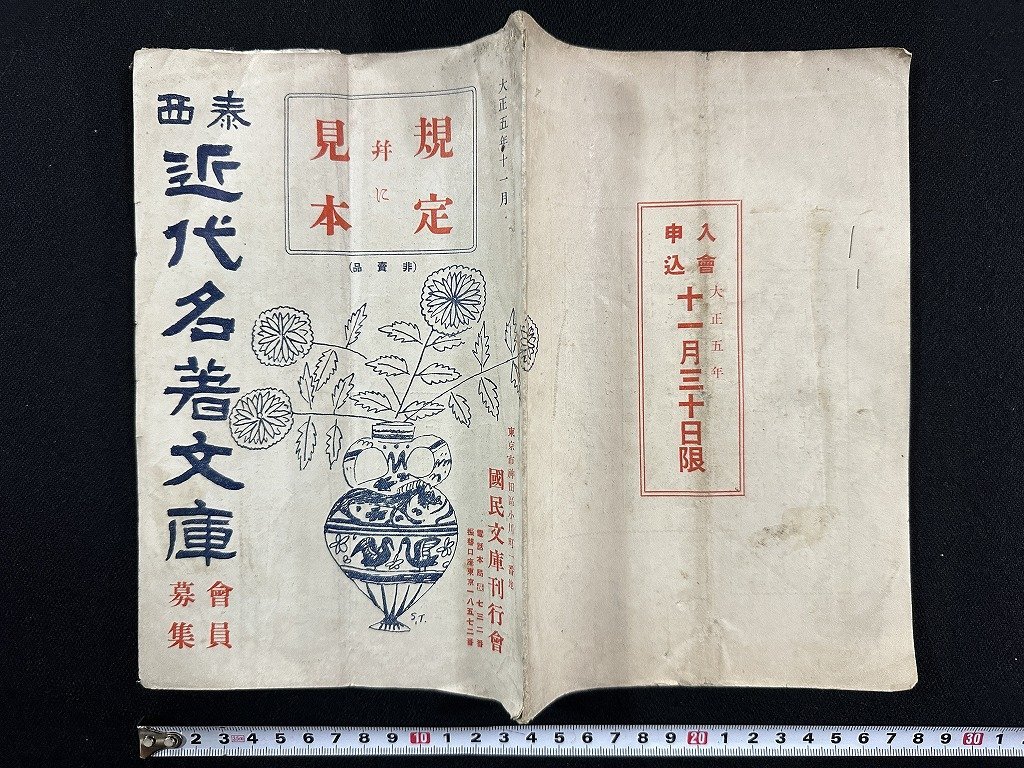 泰西
近代名著文庫
會員
募集
大正五年十一月
規定
幷に
見本
(非賣品)
東京市神田區小川町一番地
國民文庫刊行會
振替口座東京一八五七二番
S.T.
入會
申込
大正五年
十一月三十日限
1 2 3 4 5 6 7 8 9 10 1 2 3 4 5 6 7 8 9 20 1 2 3 4 5 6 7 8 9 30 1